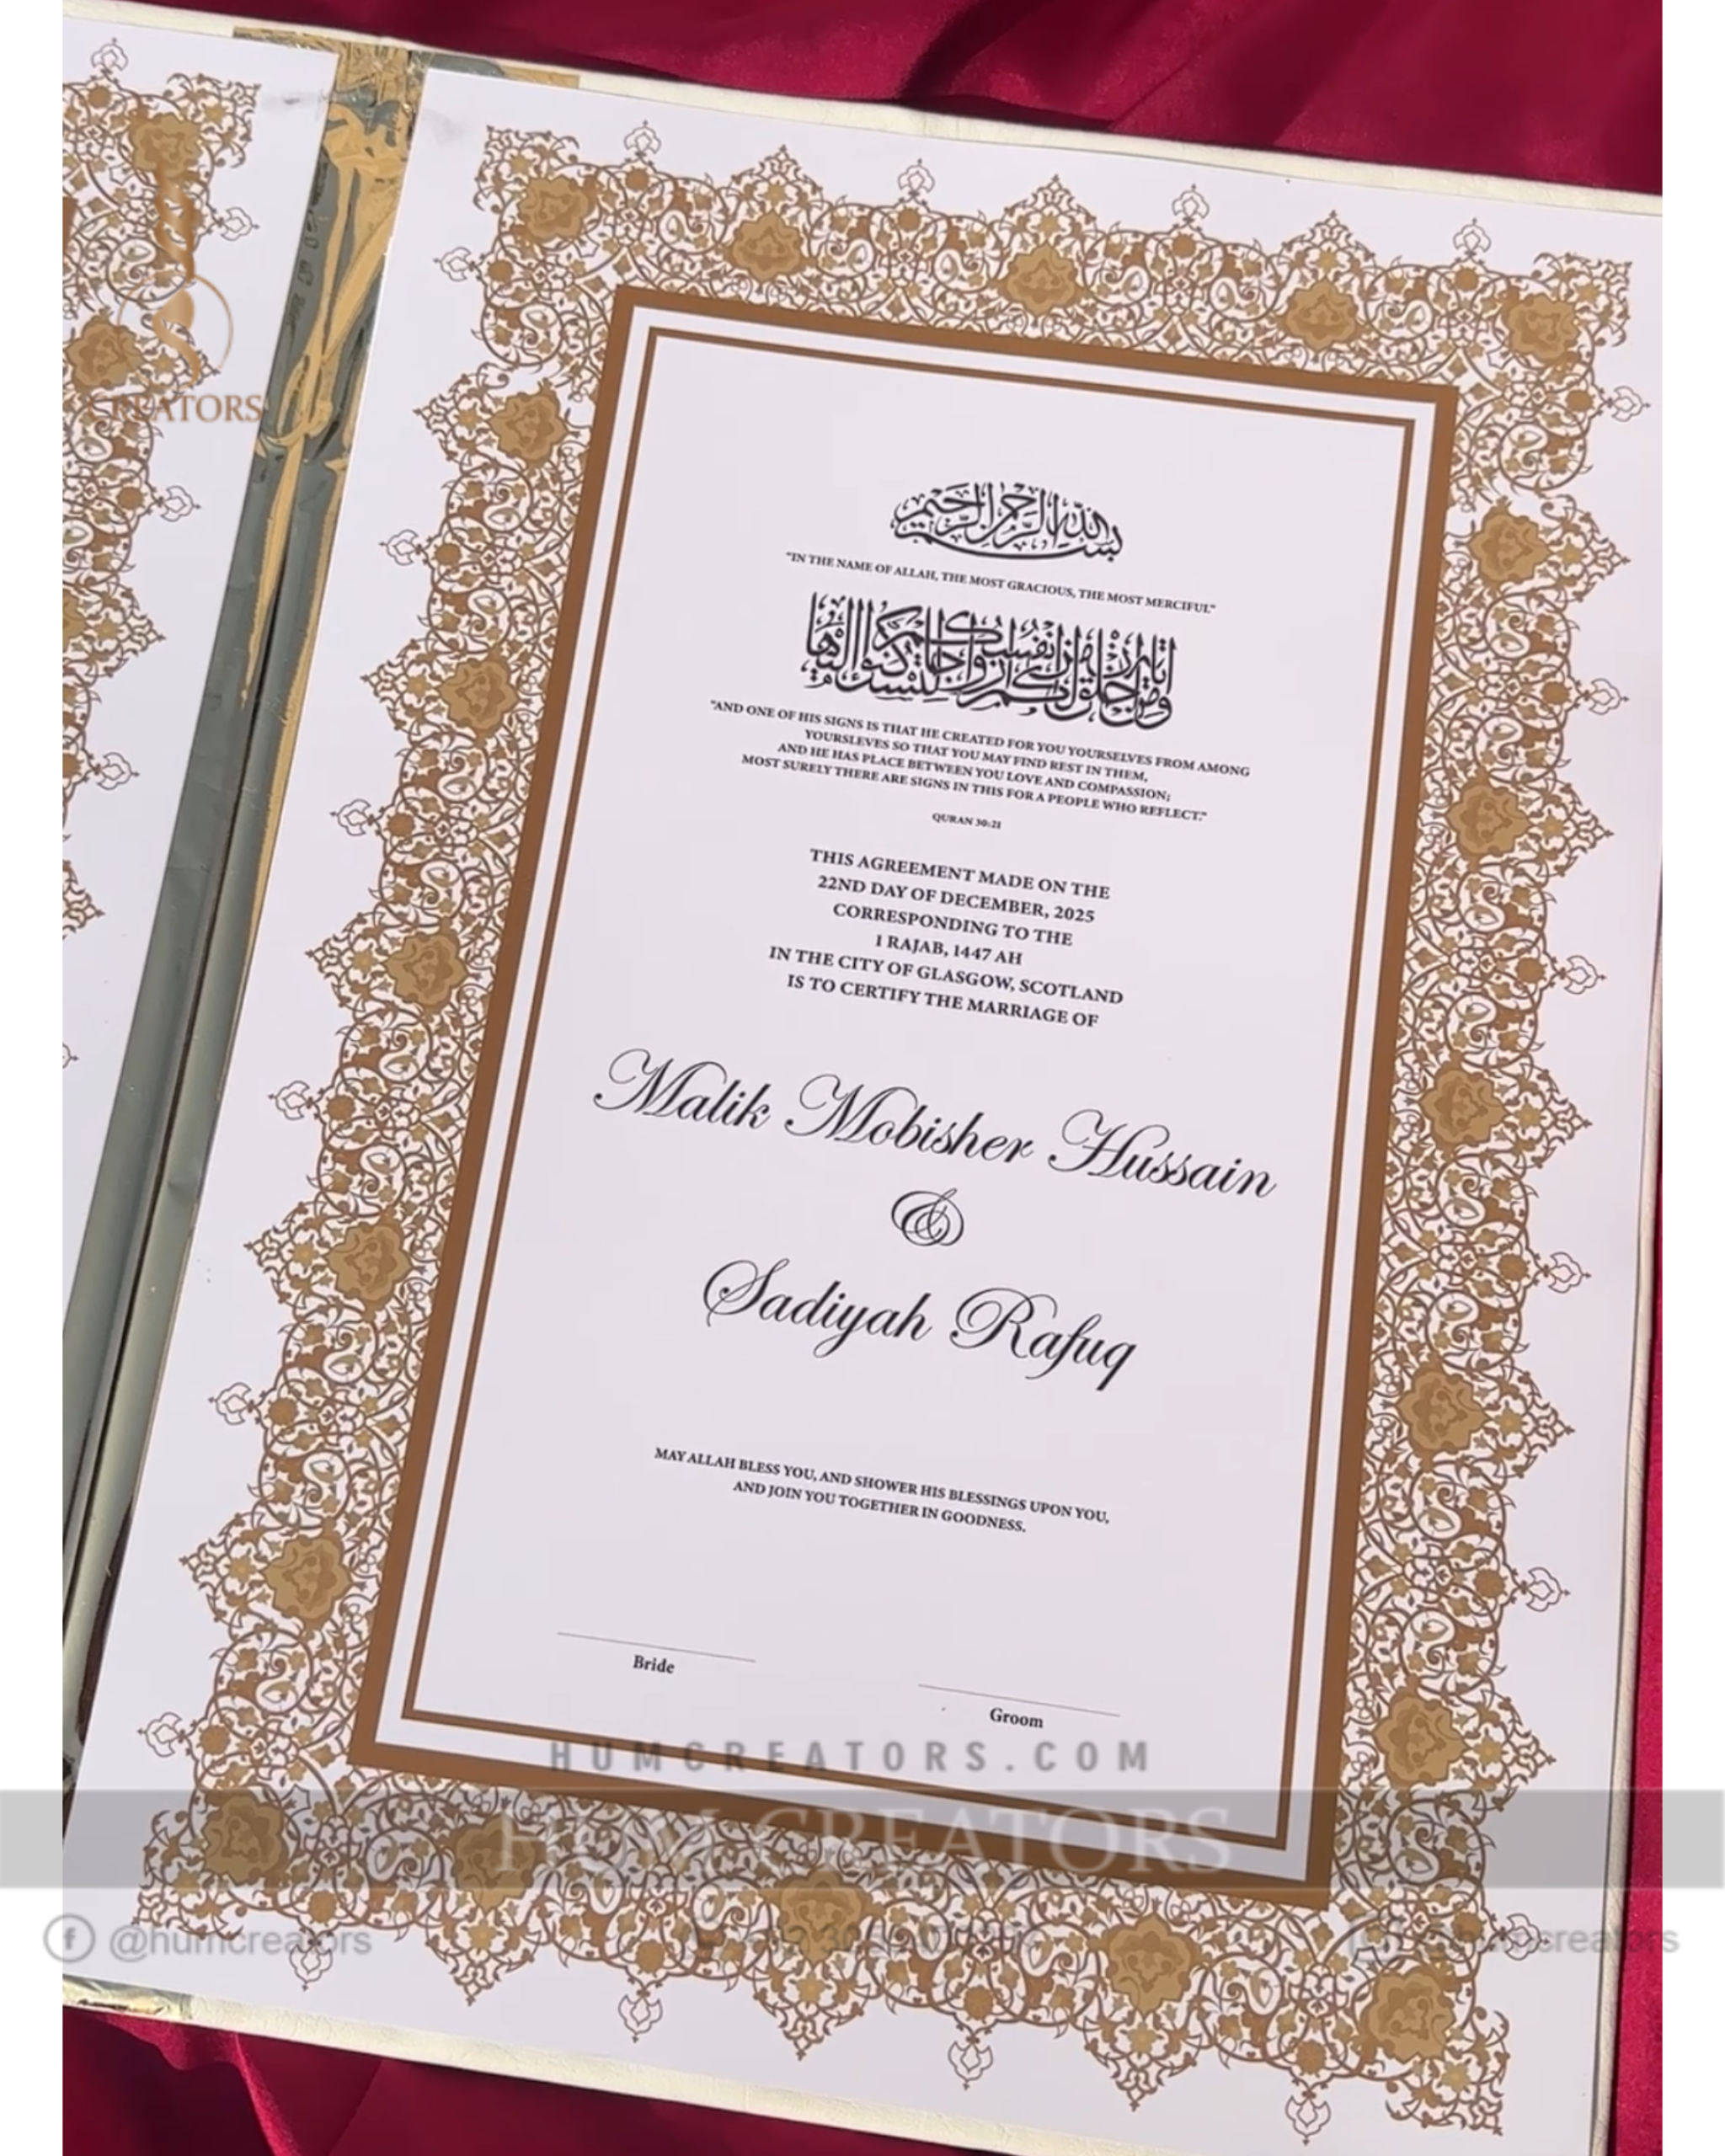 CREATORS
بسم الله الرحمن الرحيم
"IN THE NAME OF ALLAH, THE MOST GRACIOUS, THE MOST MERCIFUL"
ومن آياته أن خلق لكم من أنفسكم أزواجا لتسكنوا إليها
"AND ONE OF HIS SIGNS IS THAT HE CREATED FOR YOU YOURSELVES FROM AMONG
YOURSLEVES SO THAT YOU MAY FIND REST IN THEM,
AND HE HAS PLACE BETWEEN YOU LOVE AND COMPASSION;
MOST SURELY THERE ARE SIGNS IN THIS FOR A PEOPLE WHO REFLECT."
QURAN 30:21
THIS AGREEMENT MADE ON THE
22ND DAY OF DECEMBER, 2025
CORRESPONDING TO THE
1 RAJAB, 1447 AH
IN THE CITY OF GLASGOW, SCOTLAND
IS TO CERTIFY THE MARRIAGE OF
Malik Mobisher Hussain
&
Sadiyah Rafuq
MAY ALLAH BLESS YOU, AND SHOWER HIS BLESSINGS UPON YOU,
AND JOIN YOU TOGETHER IN GOODNESS.
Bride
Groom
HUMCREATORS.COM
HUM CREATORS
@humcreators
@humcreators